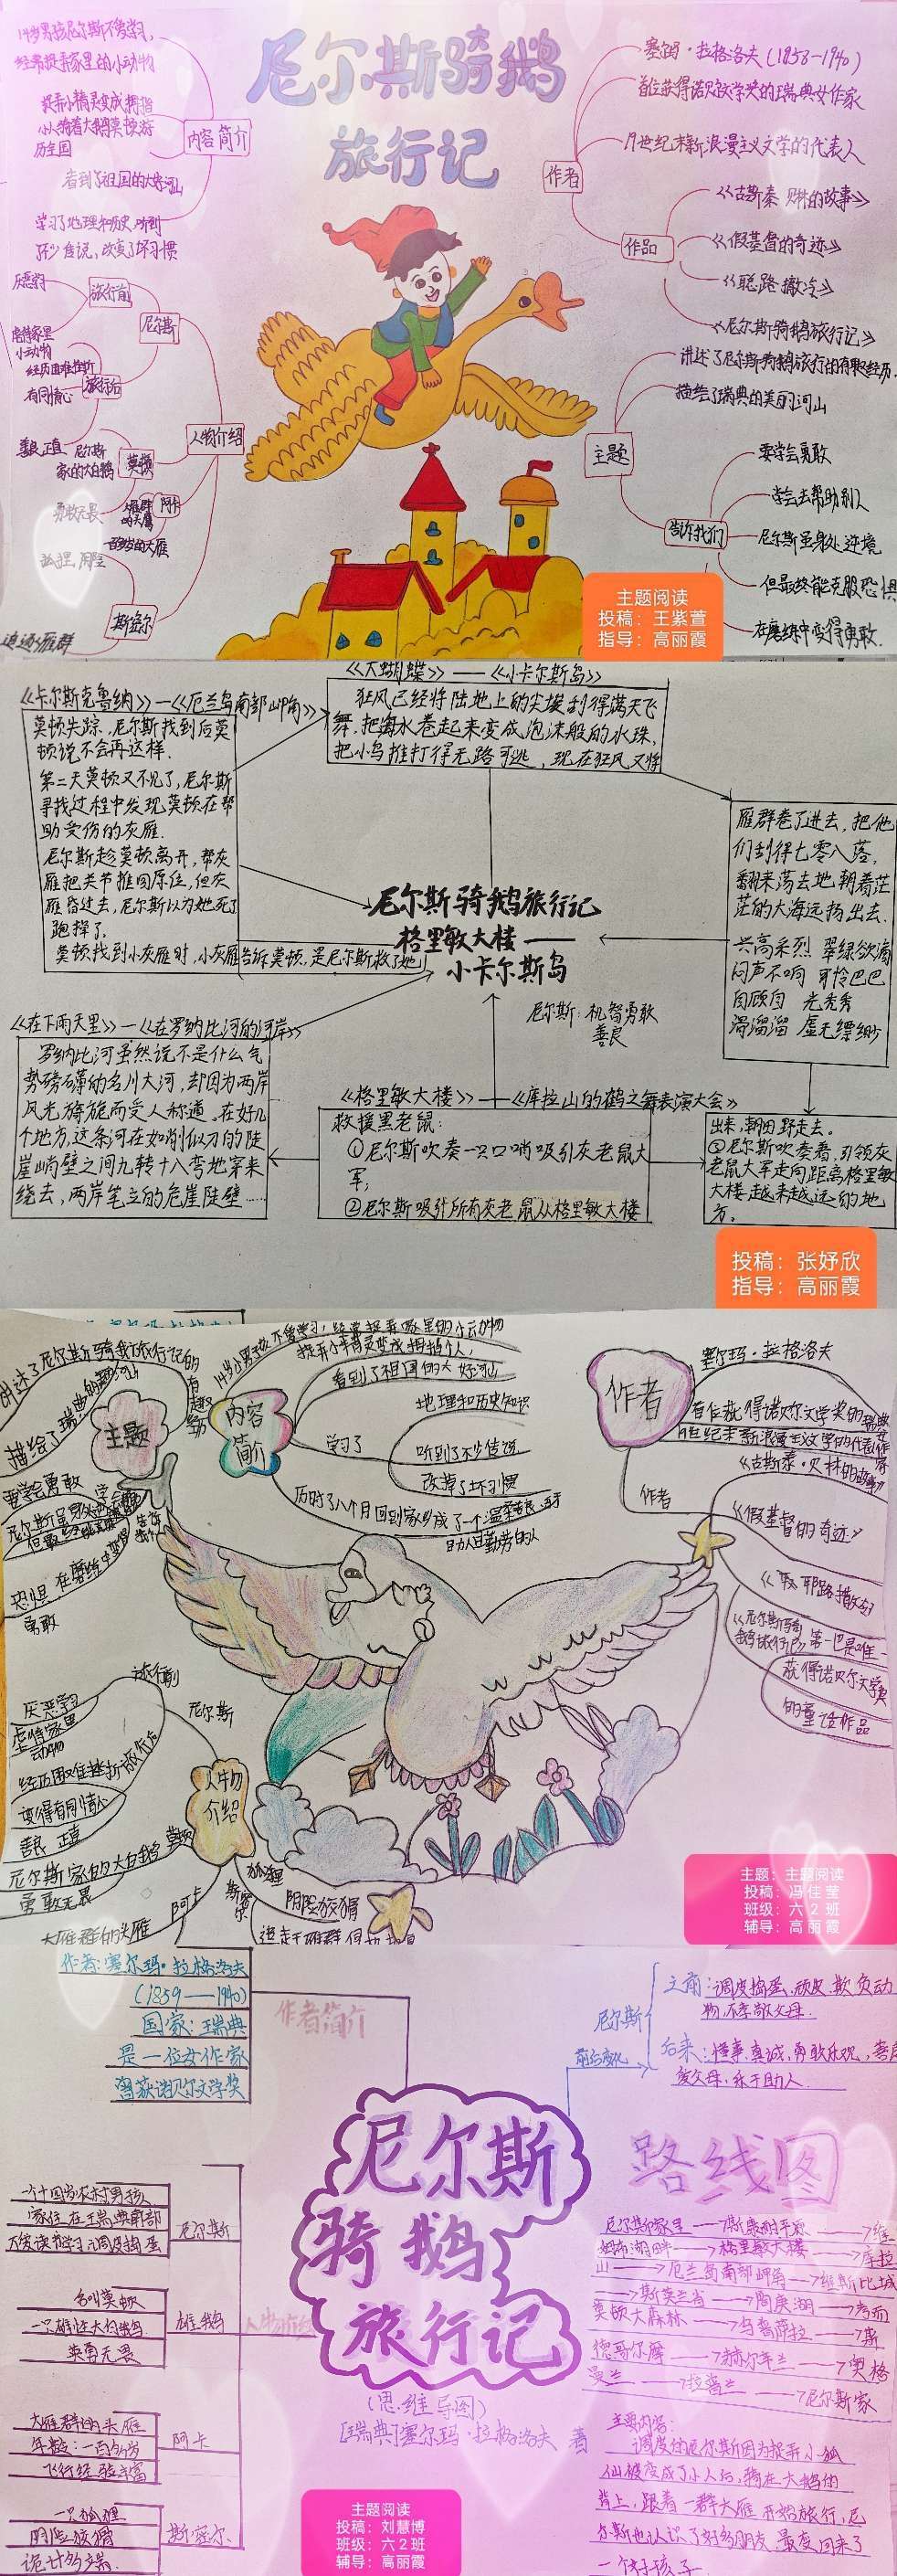 尼尔斯骑鹅
旅行记
14岁男孩尼尔斯不爱学习，
经常捉弄家里的小动物
捉弄小精灵变成拇指
小人骑着大鹅莫顿游
历全国
看到了祖国的大好河山
学习了地理和历史，听到
不少传说，改变了坏习惯
内容简介
厌恶学习
旅行前
虐待家里
小动物
尼尔斯
经历困难挫折
旅行后
有同情心
善良、正直
人物介绍
尼尔斯
家的大白鹅
莫顿
勇敢无畏
雁群
的头雁
阿卡
一百多岁的大雁
狐狸，阴险
斯密尔
追逐雁群
作者
塞尔玛·拉格洛夫(1858-1940)
首位获得诺贝尔文学奖的瑞典女作家
19世纪末新浪漫主义文学的代表人
作品
《古斯泰·贝林的故事》
《假基督的奇迹》
《耶路撒冷》
《尼尔斯骑鹅旅行记》
主题
讲述了尼尔斯骑鹅旅行的有趣经历.
描绘了瑞典的美丽河山
告诉我们
要学会勇敢
学会去帮助别人
尼尔斯虽身处逆境
但最终能克服恐惧
在磨练中变得勇敢.
主题阅读
投稿：王紫萱
指导：高丽霞
《卡尔斯克鲁纳》—《厄兰岛南部岬角》
莫顿失踪，尼尔斯找到后莫
顿说不会再这样.
第二天莫顿又不见了，尼尔斯
寻找过程中发现莫顿在帮
助受伤的灰雁.
尼尔斯趁莫顿离开，帮灰
雁把关节推回原位，但灰
雁昏过去，尼尔斯以为她死了
跑掉了.
莫顿找到小灰雁时，小灰雁告诉莫顿，是尼尔斯救了她
《大蝴蝶》——《小卡尔斯岛》
狂风已经将陆地上的尖埃刮得满天飞
舞，把海水卷起来变成泡沫般的水珠，
把小鸟推打得无路可逃，现在狂风又将
雁群卷了进去，把他
们刮得七零八落，
翻来荡去地朝着茫
茫的大海远扬出去.
兴高采烈 翠绿欲滴
闷声不响 可怜巴巴
自顾自 光秃秃
滑溜溜 虚无缥缈
尼尔斯骑鹅旅行记
格里敏大楼——
小卡尔斯岛
尼尔斯：机智勇敢
善良
《在下雨天里》—《在罗纳比河的河岸》
罗纳比河虽然说不是什么气
势磅礴的名川大河，却因为两岸
风光旖旎而受人称道。在好几
个地方，这条河在如削似刀的陡
崖峭壁之间九转十八弯地穿来
绕去，两岸笔立的危崖陡壁……
《格里敏大楼》——《库拉山的鹤之舞表演大会》
救援黑老鼠：
①尼尔斯吹奏一只口哨吸引灰老鼠大
军；
②尼尔斯吸引所有灰老鼠从格里敏大楼
出来，朝田野走去。
③尼尔斯吹奏着，引领灰
老鼠大军走向距离格里敏
大楼越来越远的地
方。
投稿：张妤欣
指导：高丽霞
讲述了尼尔斯骑鹅旅行记的
有趣经历
主题
要学会勇敢
恐惧 在磨练中变得
勇敢
内容
简介
14岁小男孩不爱学习，经常捉弄家里的小动物
捉弄小精灵变成拇指人，
看到了祖国的大好河山
学习了
地理和历史知识
听到了不少传说
改掉了坏习惯
历时了八个月回到家乡成了一个温柔善良、乐于
助人且勤劳的人
作者
塞尔玛·拉格洛夫
首位获得诺贝尔文学奖的瑞典女作家
19世纪末新浪漫主义文学的代表
作者
《古斯泰·贝林的故事》
《假基督的奇迹》
《尼尔斯骑
鹅旅行记》第一也是唯一
获得诺贝尔文学奖
的童话作品
旅行前
尼尔斯
厌恶学习
虐待家里
小动物
经历困难挫折旅行后
变得有同情心
善良 正直
人物
介绍
尼尔斯家的大白鹅 莫顿
勇敢无畏
阿卡
大雁群的头雁
狐狸
斯密尔
阴险狡猾
主题：主题阅读
投稿：冯佳莹
班级：六2班
辅导：高丽霞
作者：塞尔玛·拉格洛夫
(1859——1940)
国家：瑞典
是一位女作家
曾获诺贝尔文学奖
作者简介
尼尔斯
前后变化
之前：调皮捣蛋、顽皮、欺负动
物，不孝敬父母.
后来：懂事、真诚、勇敢乐观，善良
爱父母，乐于助人.
尼尔斯
骑鹅
旅行记
(思维导图)
[瑞典]塞尔玛·拉格洛夫 著
一个十四岁农村男孩
家住在瑞典南部
不爱读书学习、调皮捣蛋
尼尔斯
名叫莫顿
一只雄性大白鹅
英勇无畏
雄鹅
大雁群的头雁
年龄：一百多岁
飞行经验丰富
阿卡
一只狐狸
阴险狡猾
诡计多端.
斯密尔.
路线图
尼尔斯家里——→斯康耐平原——→维
姆布湖畔——→格里敏大楼——→库拉
山——→厄兰岛南部岬角——→维斯比城
——→斯莫兰省——→陶庚湖——→考而
莫顿大森林——→乌普萨拉——→斯
德哥尔摩——→赫尔辛兰——→奥格
曼兰——→拉普兰——→尼尔斯家
主要内容：
调皮的尼尔斯因为捉弄小狐
仙被变成了小人后，骑在大鹅的
背上，跟着一群大雁开始旅行，尼
尔斯也认识了好多朋友，最后回来了
一个好孩子
主题阅读
投稿：刘慧博
班级：六2班
辅导：高丽霞